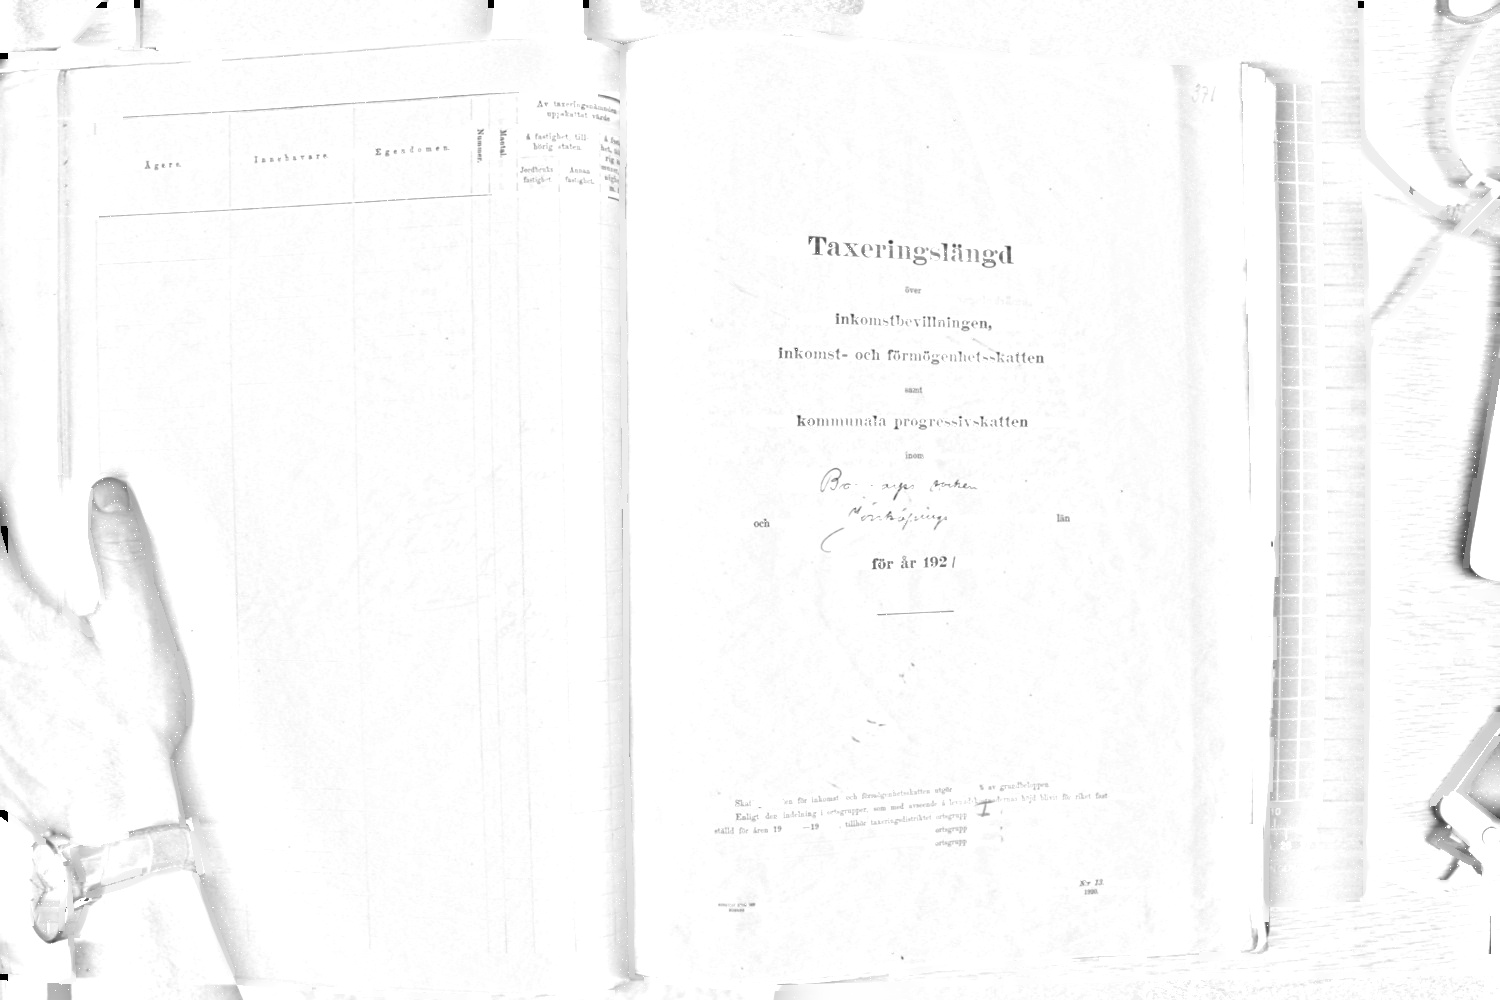 Ägare.
Innehavare.
Egendomen.
Nummer.
Mantal.
Av taxeringsnämnden
uppskattat värde
å fastighet till-
hörig staten.
Jordbruks-
fastighet.
Annan
fastighet.
371
Taxeringslängd
över
inkomstbevillningen,
inkomst- och förmögenhetsskatten
samt
kommunala progressivskatten
inom
socken
och Jönköpings län
för år 1921
en för inkomst- och förmögenhetsskatten utgör % av grundbeloppen.
Enligt den indelning i ortsgrupper, som med avseende å levnadskostnadernas höjd blivit för riket fast-
ställd för åren 19 —19 , tillhör taxeringsdistriktet ortsgrupp I
ortsgrupp
ortsgrupp
N:r 13.
1920.